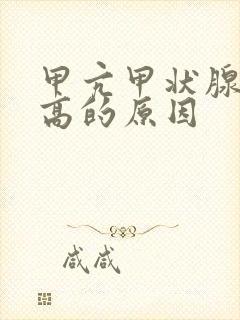 甲亢甲状腺
高的原因
咸咸